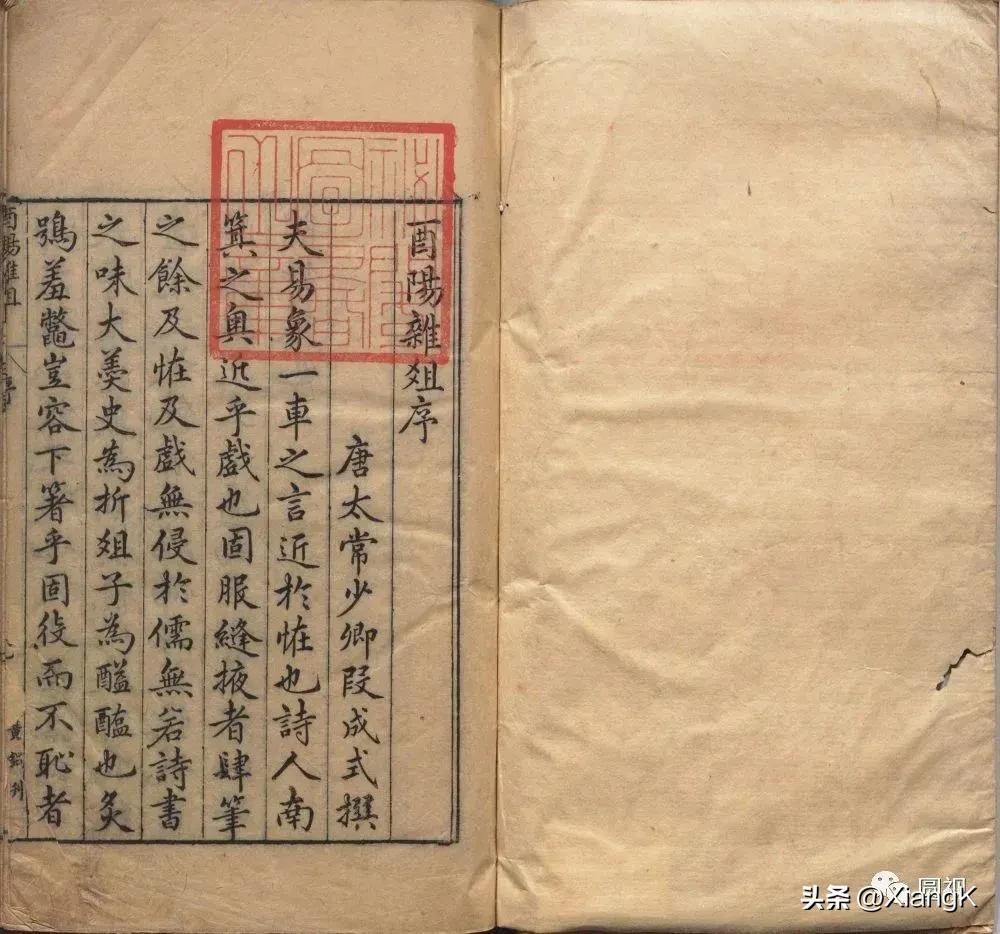 酉陽雜俎序
唐太常少卿段成式撰
夫易象一車之言近於恠也詩人南
箕之奥近乎戲也固服縫掖者肆筆
之餘及恠及戲無侵於儒無若詩書
之味大羮史為折俎子為醯醢也炙
鴞羞鼈豈容下箸乎固役而不恥者
酉陽雜俎
序
黄鋘刋
圆视
头条 @XiangK